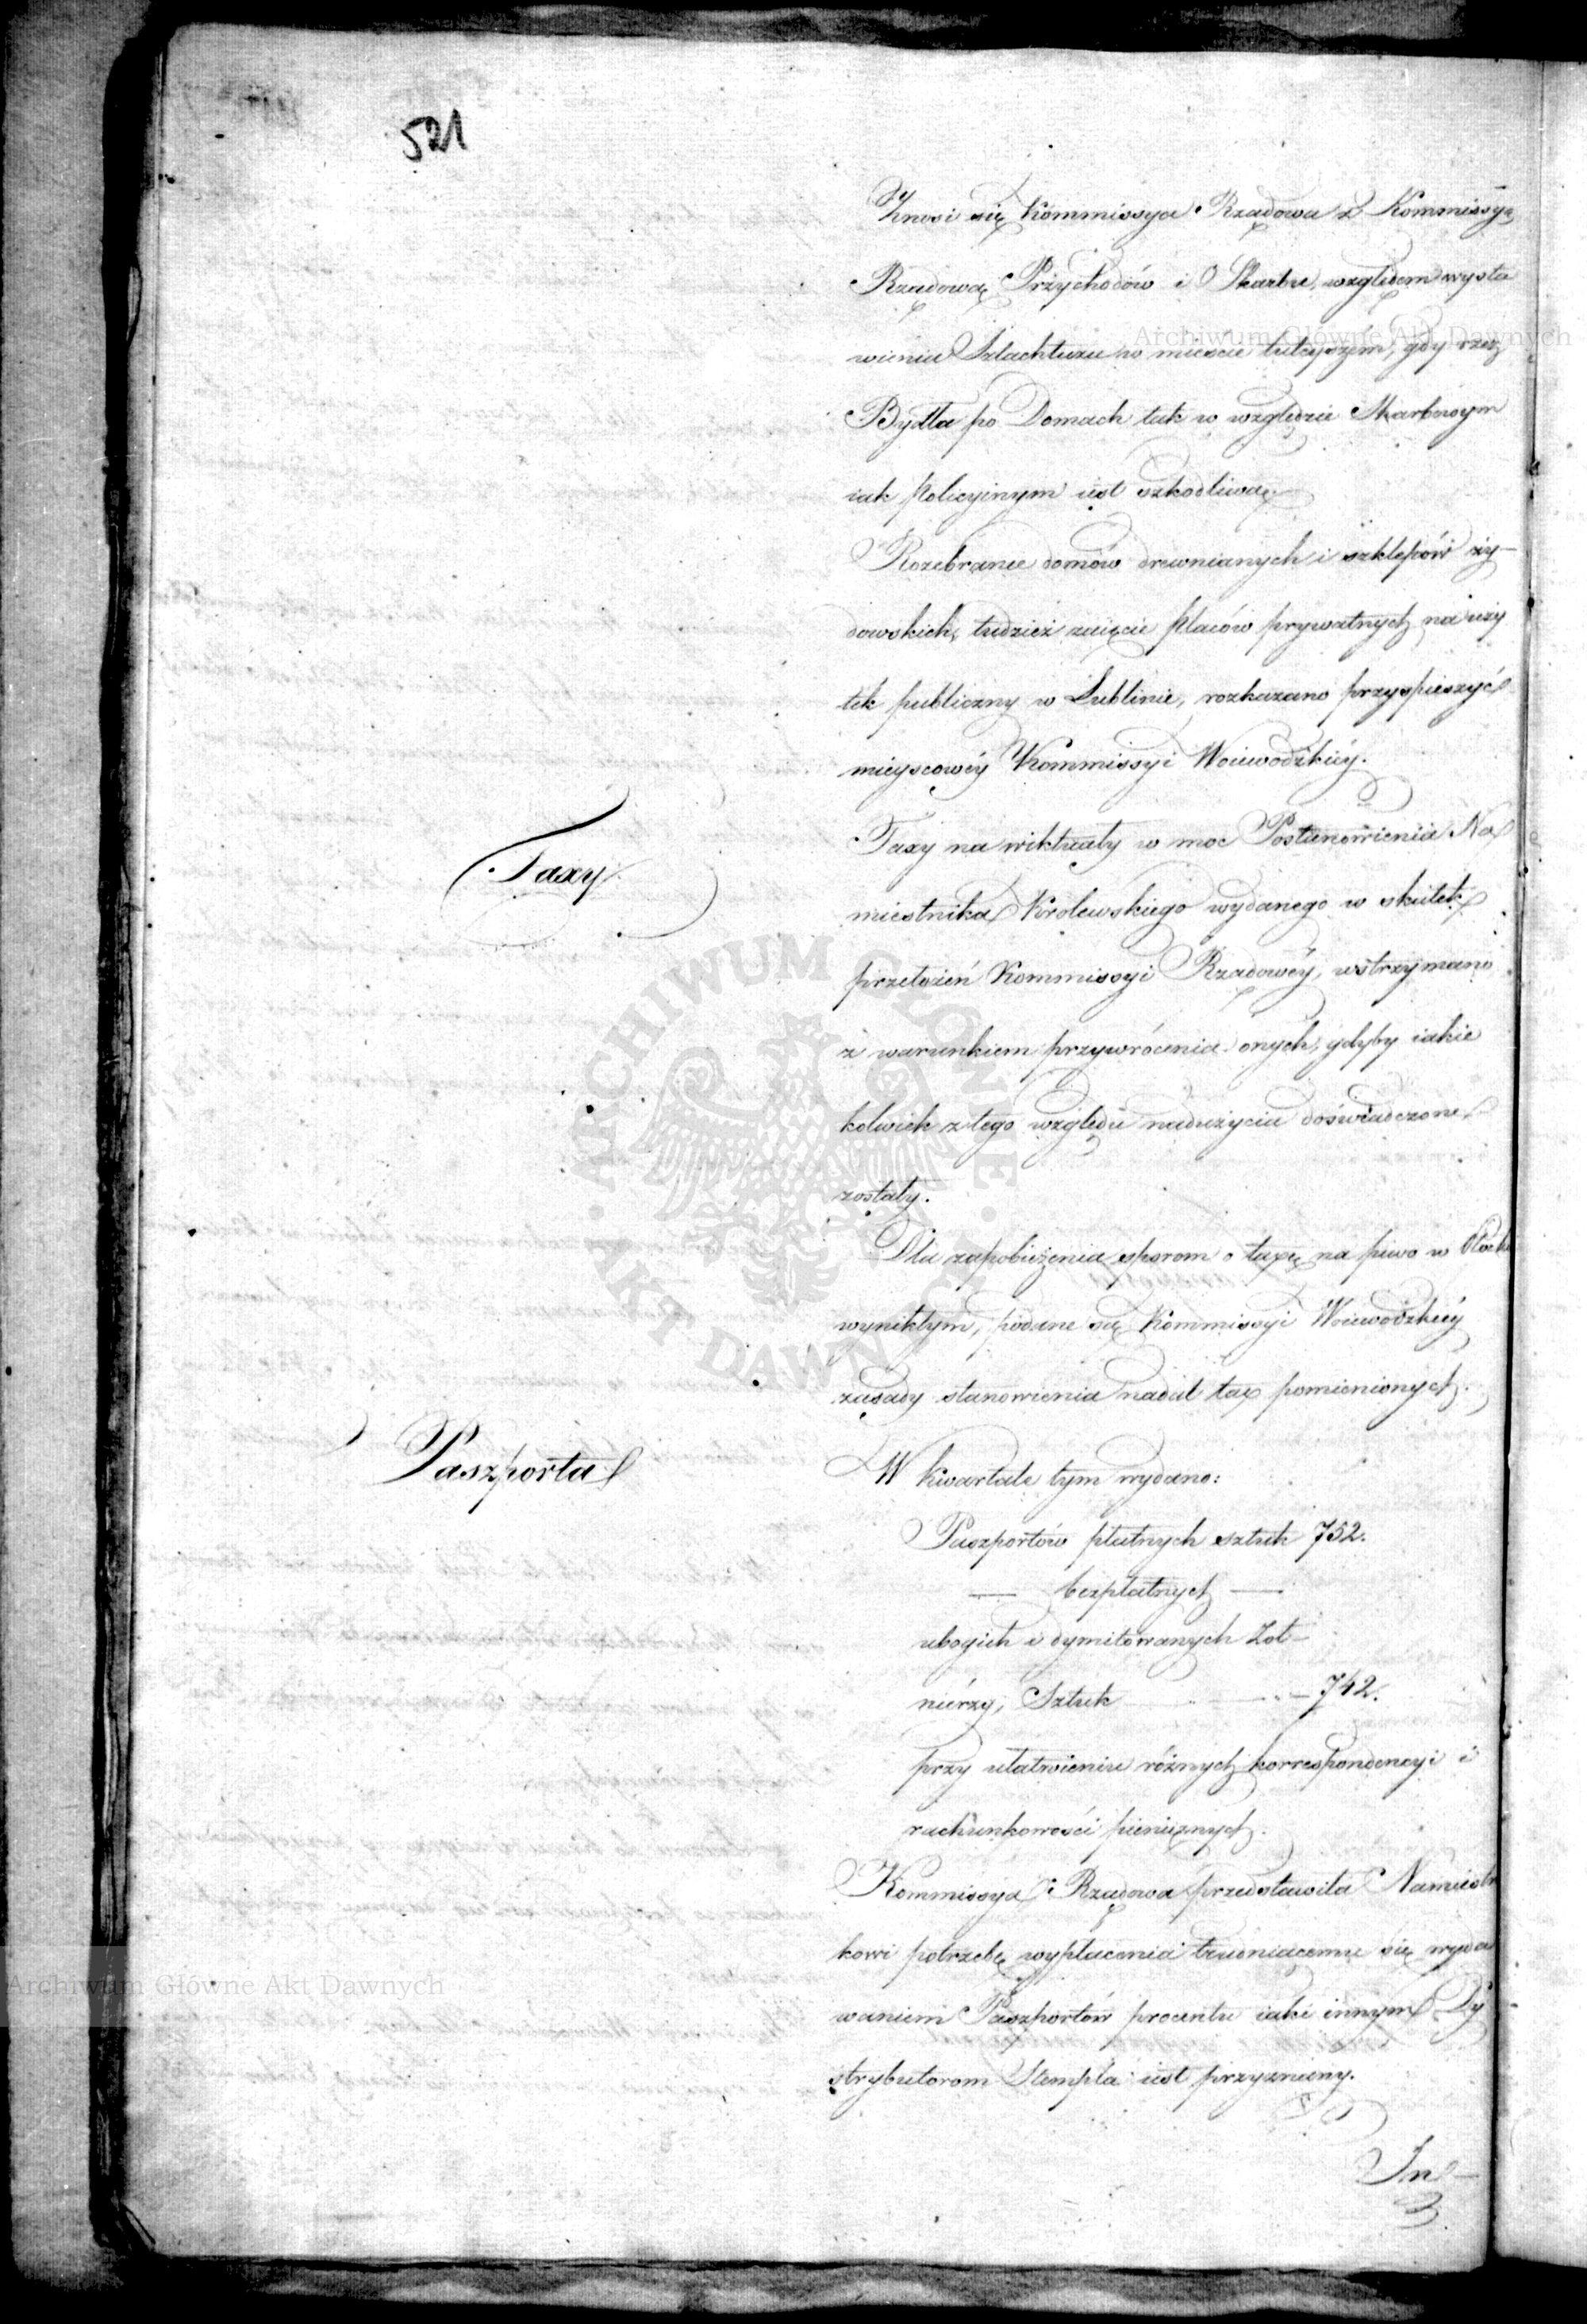 521
Znosi się Kommissya Rządowa z Kommissyą
Rządową Przychodów i Skarbu, względem wysta
wienia Szlachtuzu w mieście tuteyszém, gdy rzeź
Bydła po Domach tak w względzie Skarbowym
iak Policyinym iest szkodliwą.
Rozebranie domów drewnianych i szklepów ży-
dowskich, tudzież zaięcie Placów prywatnych na uży
tek publiczny w Lublinie, rozkazano przyspieszyć
mieyscowéy Kommissyi Woiewódzkiéy.
Taxy
Taxy na wiktuały w moc Postanowienia Na
miestnika Krolewskiego wydanego w skutek
przełożeń Kommissyi Rządowéy, wstrzymano
z warunkiem przywrócenia onych, gdyby iakie
kolwiek z tego względu nadużycia doświadczone
zostały.
Dla zapobieżenia sporom o taxę na piwo w Płocku
wynikłym, podane są Kommissyi Woiewódzkiéy
zasady stanowienia nadal tax pomienionych.
Paszporta
W kwartale tym wydano:
Paszportów płatnych sztuk 752.
— bezpłatnych —
ubogich i dymitowanych Żoł-
niérzy, Sztuk — 742.
przy ułatwieniu różnych korrespondencyi i
rachunkowości pieniężnych.
Kommissya Rządowa przedstawiła Namiestni
kowi potrzebę wypłacenia trudniącemu się wyda
waniem Paszportów procentu iaki innym Dy
strybutorom Stempla iest przyznany.
In-
Archiwum Główne Akt Dawnych
Archiwum Główne Akt Dawnych
ARCHIWUM GŁÓWNE AKT DAWNYCH